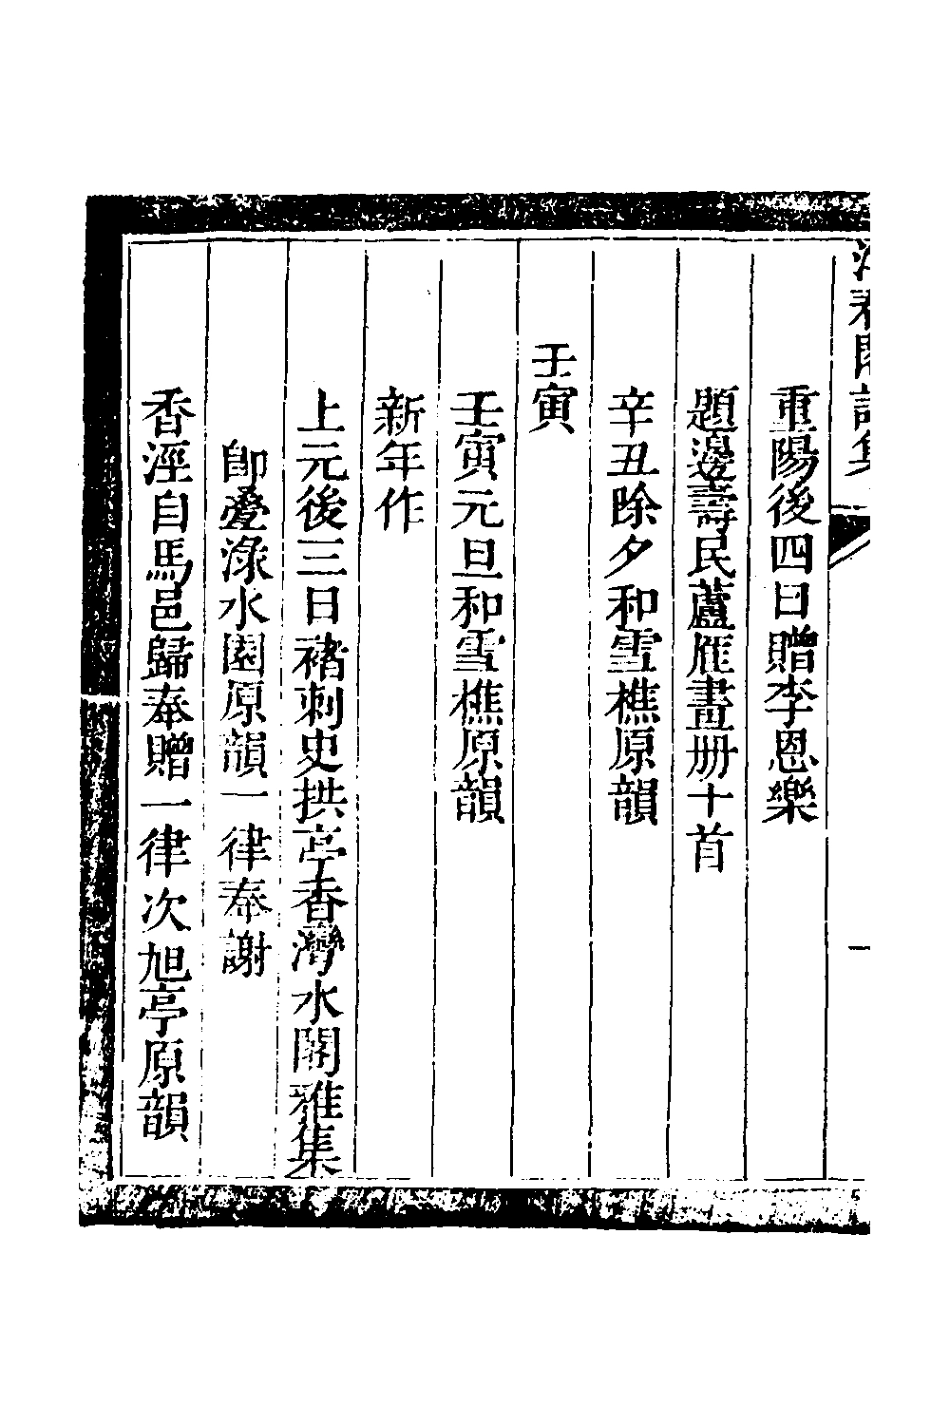 重陽後四日贈李恩樂
題邊壽民蘆雁畫册十首
辛丑除夕和雪樵原韻
壬寅
壬寅元旦和雪樵原韻
新年作
上元後三日褚刺史拱亭香灣水閣雅集
卽疊淥水園原韻一律奉謝
香涇自馬邑歸奉贈一律次旭亭原韻